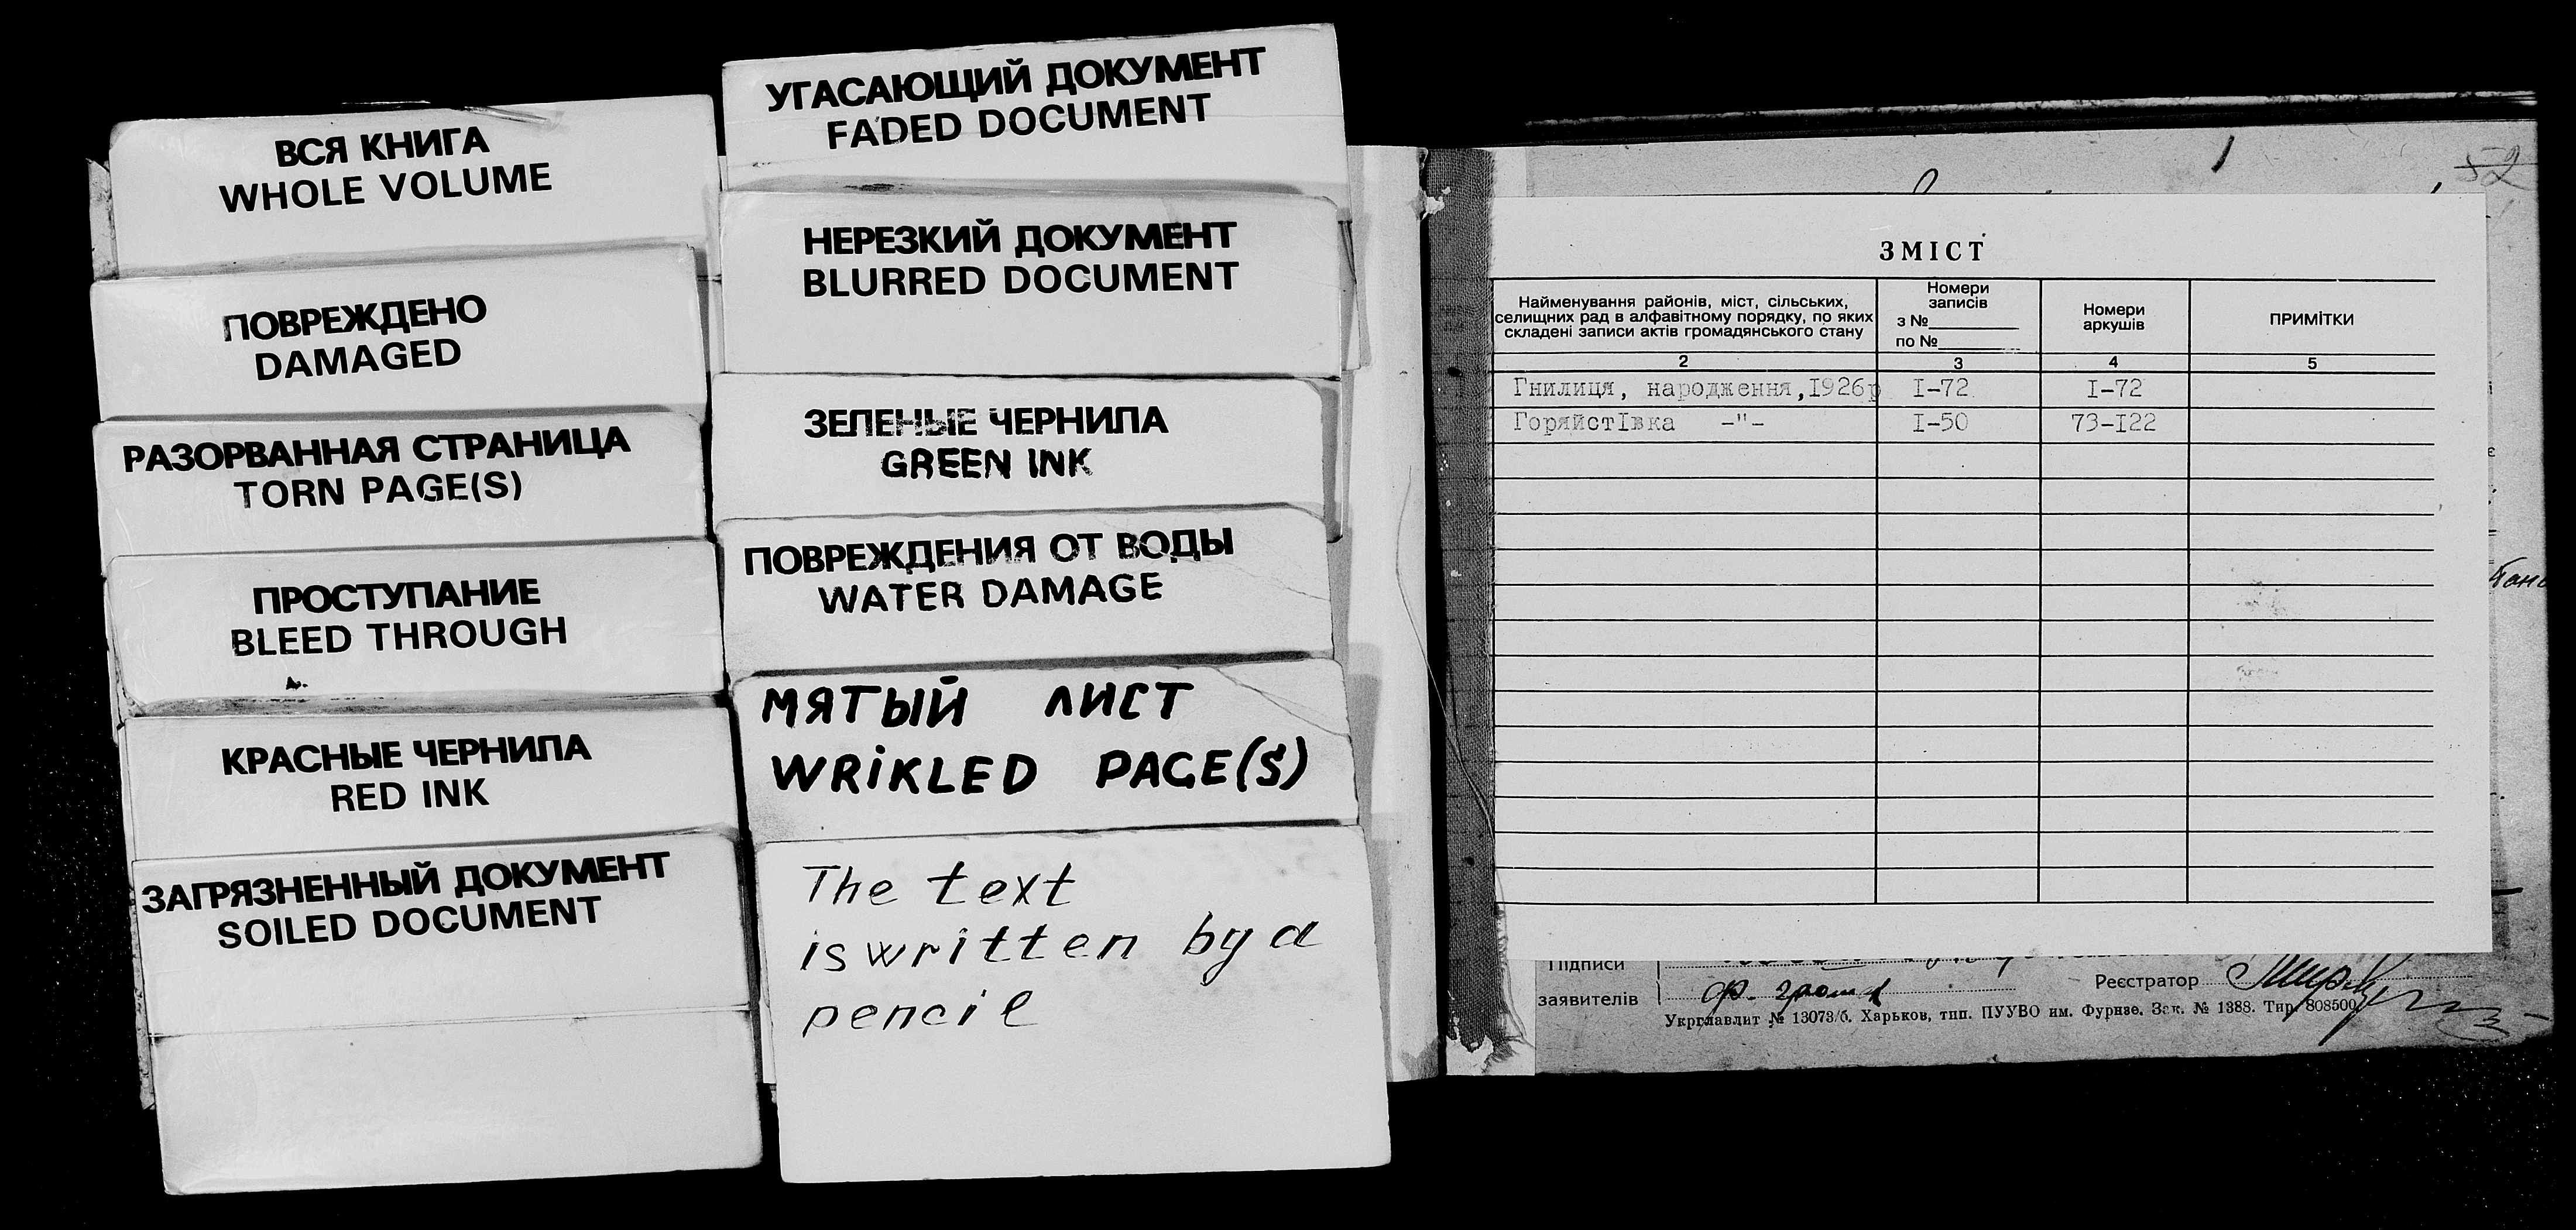 ВСЯ КНИГА
WHOLE VOLUME
ПОВРЕЖДЕНО
DAMAGED
РАЗОРВАННАЯ СТРАНИЦА
TORN PAGE(S)
ПРОСТУПАНИЕ
BLEED THROUGH
КРАСНЫЕ ЧЕРНИЛА
RED INK
ЗАГРЯЗНЕННЫЙ ДОКУМЕНТ
SOILED DOCUMENT
УГАСАЮЩИЙ ДОКУМЕНТ
FADED DOCUMENT
НЕРЕЗКИЙ ДОКУМЕНТ
BLURRED DOCUMENT
ЗЕЛЕНЫЕ ЧЕРНИЛА
GREEN INK
ПОВРЕЖДЕНИЯ ОТ ВОДЫ
WATER DAMAGE
МЯТЫЙ ЛИСТ
WRIKLED PAGE(S)
The text
is written by a
pencil
1 52
ЗМІСТ
Найменування районів, міст, сільських,
селищних рад в алфавітному порядку, по яких
складені записи актів громадянського стану
Номери
записів
з №
по №
Номери
аркушів
ПРИМІТКИ
2 3 4 5
Гнилиця, народження,I926р I-72 I-72
ГоряйстІвка -"- I-50 73-I22
Підписи
заявителів
Реєстратор
Укрглавлит № 13073/б. Харьков, тип. ПУУВО им. Фрунзе. Зак. № 1388. Тир. 808500